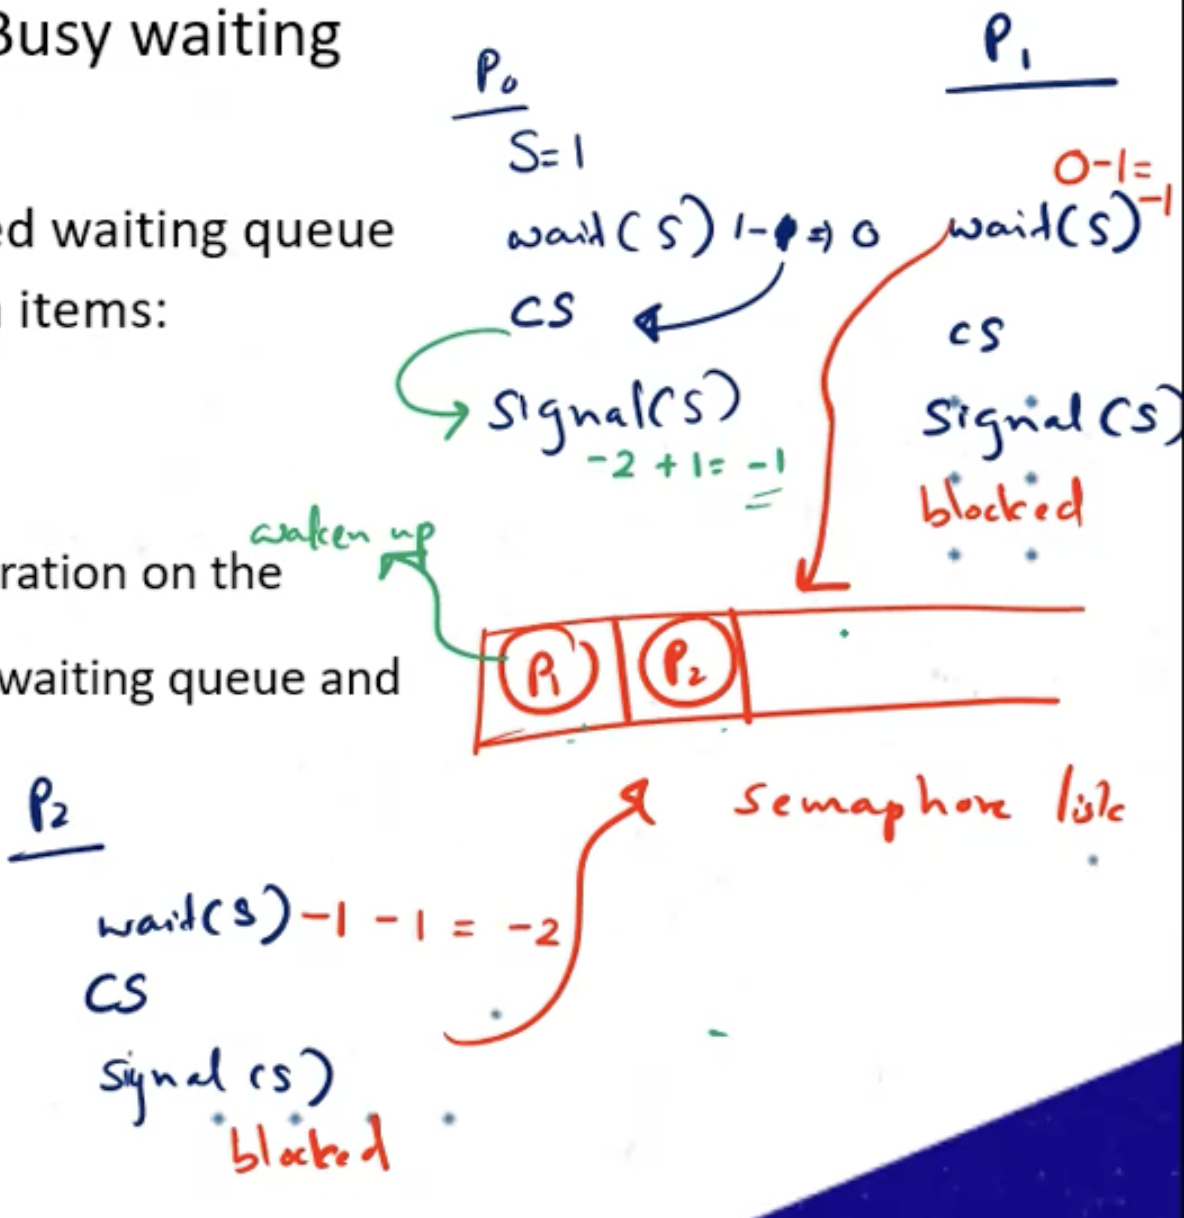 Busy waiting
ed waiting queue
items:
ration on the
waiting queue and
P0
S=1
wait(S) 1- => 0
CS
Signal(S)
-2 +1= -1
P1
0-1=
-1
wait(S)
CS
Signal(S)
blocked
waken up
P1 P2
semaphore
P2
wait(S) -1 -1 = -2
CS
Signal(S)
blocked